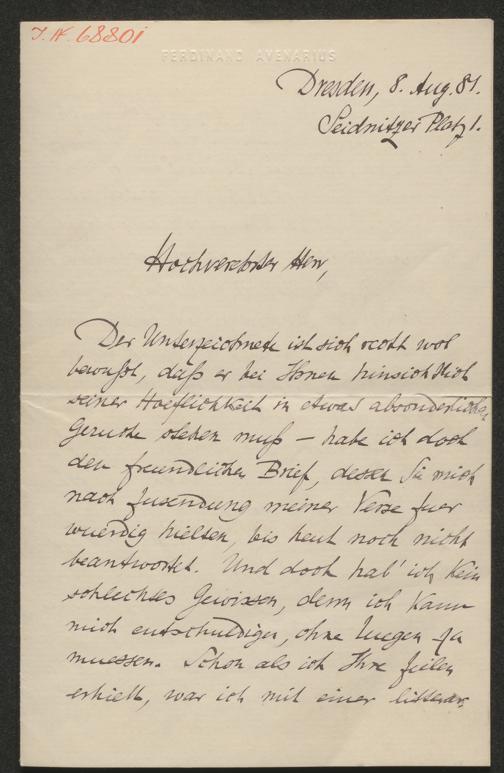 J.N. 68801
FERDINAND AVENARIUS
Dresden, 8. Aug. 81.
Seidnitzer Platz 1.
Hochverehrter Herr,
Der Unterzeichnete ist sich recht wol
bewußt, daß er bei Ihnen hinsichtlich
seiner Hoeflichkeit in etwas absonderlichem
Geruche stehen muß – habe ich doch
den freundlichen Brief, dessen Sie mich
nach Zusendung meiner Verse fuer
wuerdig hielten, bis heut noch nicht
beantwortet. Und doch hab' ich kein
schlechtes Gewissen, denn ich kann
mich entschuldigen, ohne luegen zu
muessen. Schon als ich Ihre Zeilen
erhielt, war ich mit einer litterar,